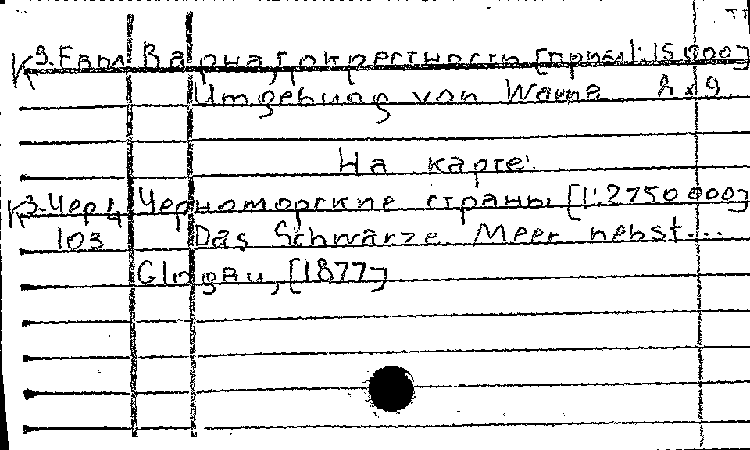 К 3-Евр Варна, окрестности [прибл 1:15 000]
Umgebung von Warna 8 x 9
На карте:
К 3-Чер 4 Черноморские страны [1:2750 000]
103 Das Schwarze Meer nebst...
Glogau, [1877]